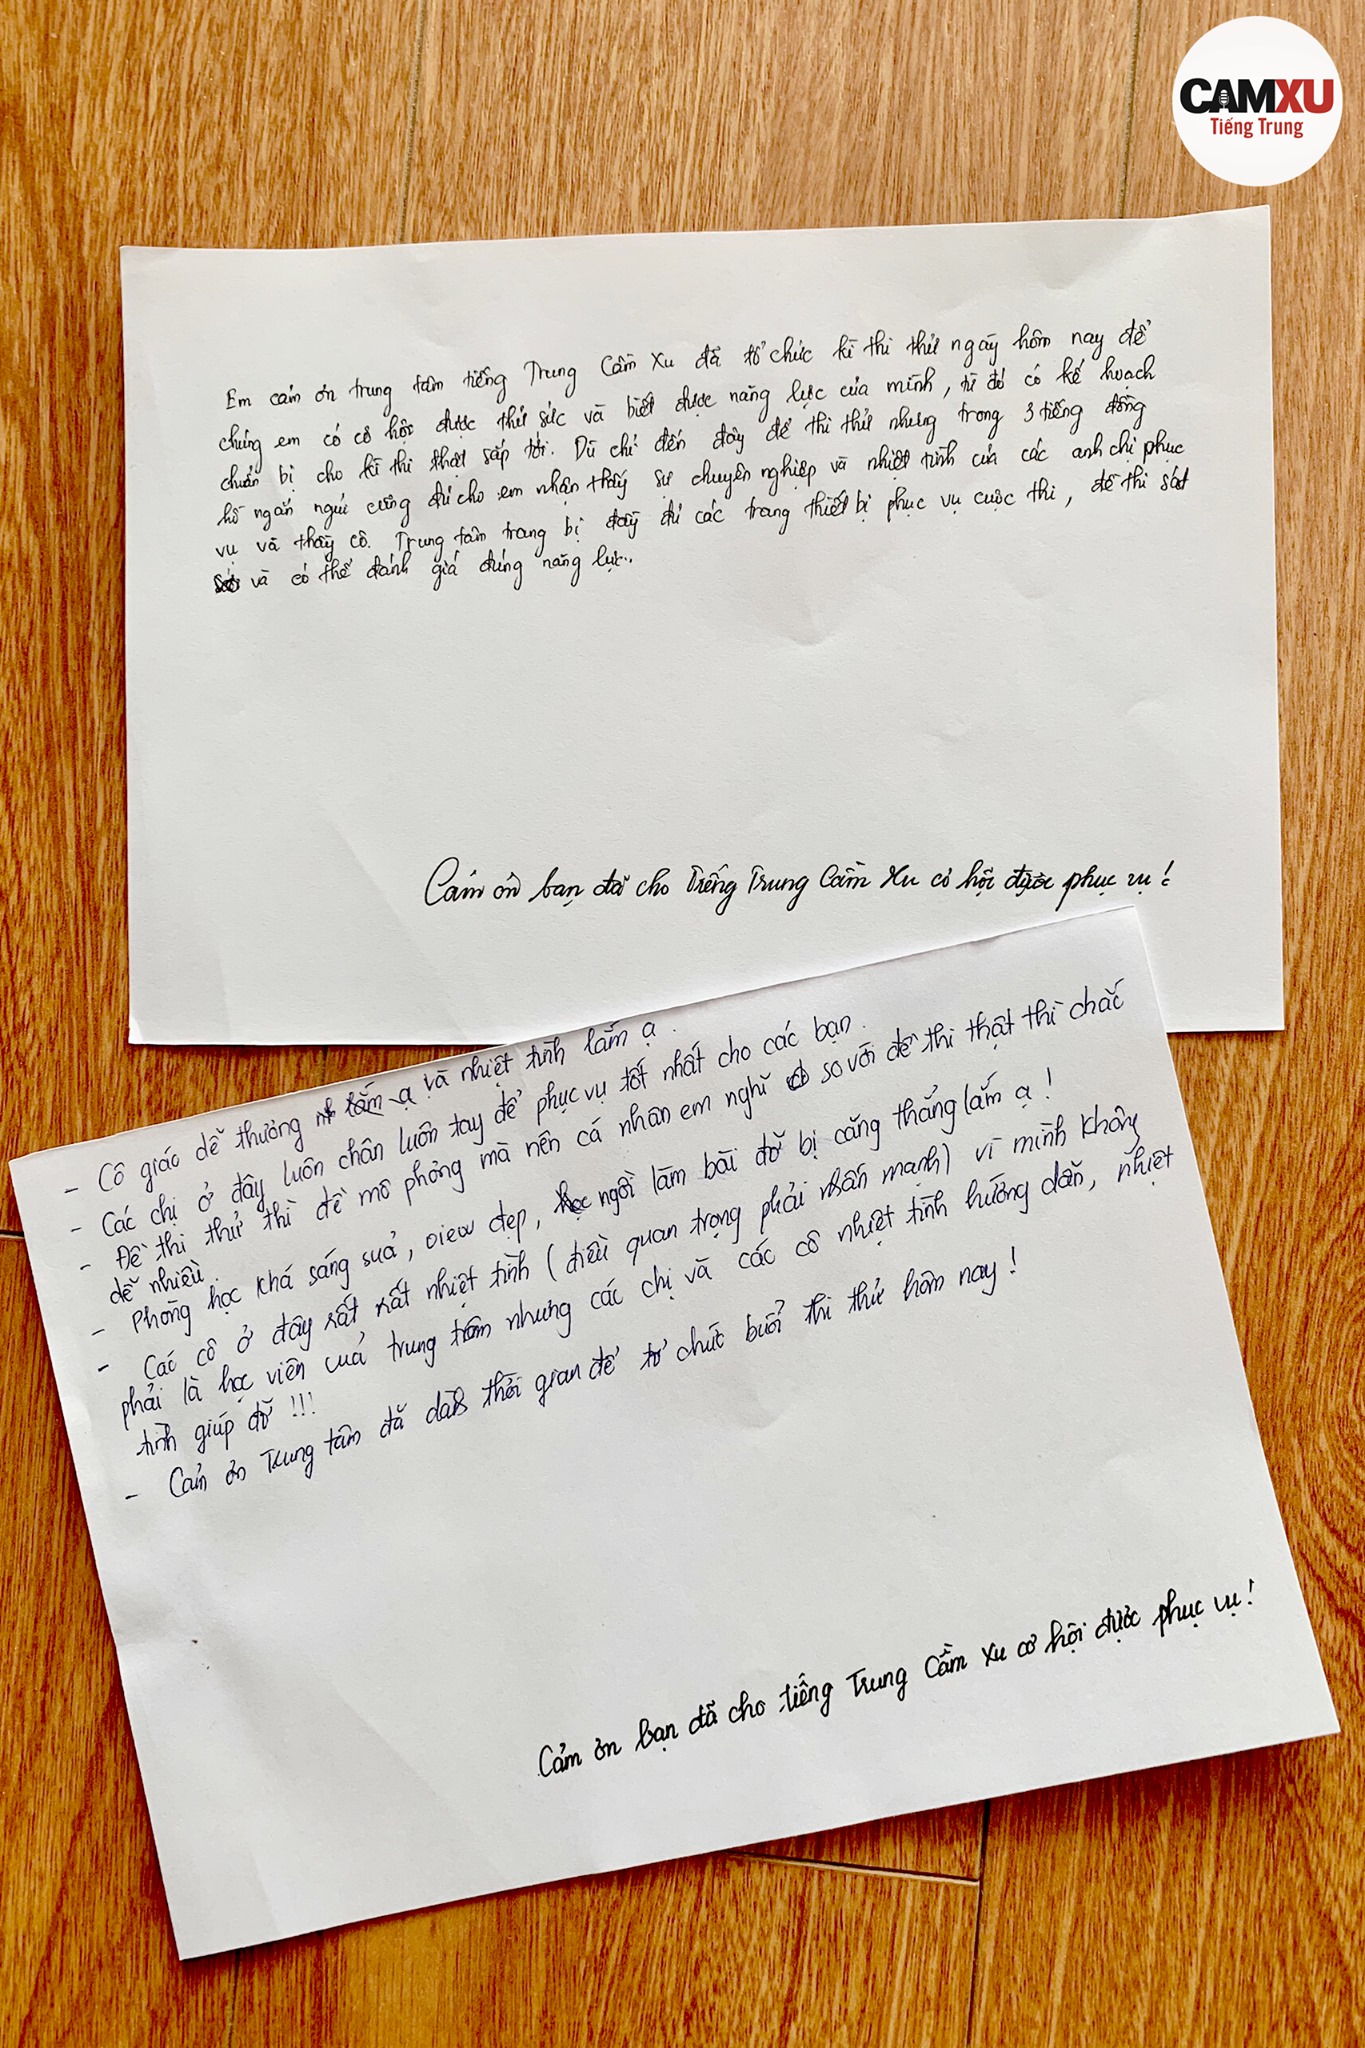 CAMXU
Tiếng Trung
Em cám ơn trung tâm tiếng Trung Cầm Xu đã tổ chức kì thi thử ngày hôm nay để
chúng em có cơ hội được thử sức và biết được năng lực của mình, từ đó có kế hoạch
chuẩn bị cho kì thi thật sắp tới. Dù chỉ đến đây để thi thử nhưng trong 3 tiếng đồng
hồ ngắn ngủi cũng đủ cho em nhận thấy sự chuyên nghiệp và nhiệt tình của các anh chị phục
vụ và thầy cô. Trung tâm trang bị đầy đủ các trang thiết bị phục vụ cuộc thi, đề thi sát
và có thể đánh giá đúng năng lực..
Cám ơn bạn đã cho Tiếng Trung Cầm Xu cơ hội được phục vụ!
- Cô giáo dễ thương lắm ạ và nhiệt tình lắm ạ.
- Các chị ở đây luôn chân luôn tay để phục vụ tốt nhất cho các bạn.
- Đề thi thử thì đề mô phỏng mà nên cá nhân em nghĩ so với đề thi thật thì chắc
dễ nhiều.
- Phòng học khá sáng suả, view đẹp, ngồi làm bài đỡ bị căng thẳng lắm ạ!
- Các cô ở đây rất rất nhiệt tình (điều quan trọng phải nhấn mạnh) vì mình không
phải là học viên cuả trung tâm nhưng các chị và các cô nhiệt tình hướng dẫn, nhiệt
tình giúp đỡ!!!
- Cảm ơn Trung tâm đã dành thời gian để tổ chức buổi thi thử hôm nay!
Cảm ơn bạn đã cho tiếng Trung Cầm Xu cơ hội được phục vụ!